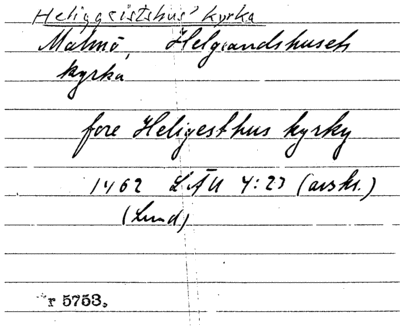 Heliggeistshus' kyrka
Malmö, Helgeandshusets
kyrka
fore Heligesthus kyrky
1462 LÄU 4:23 (avskr.)
(Lund)
r 5753.